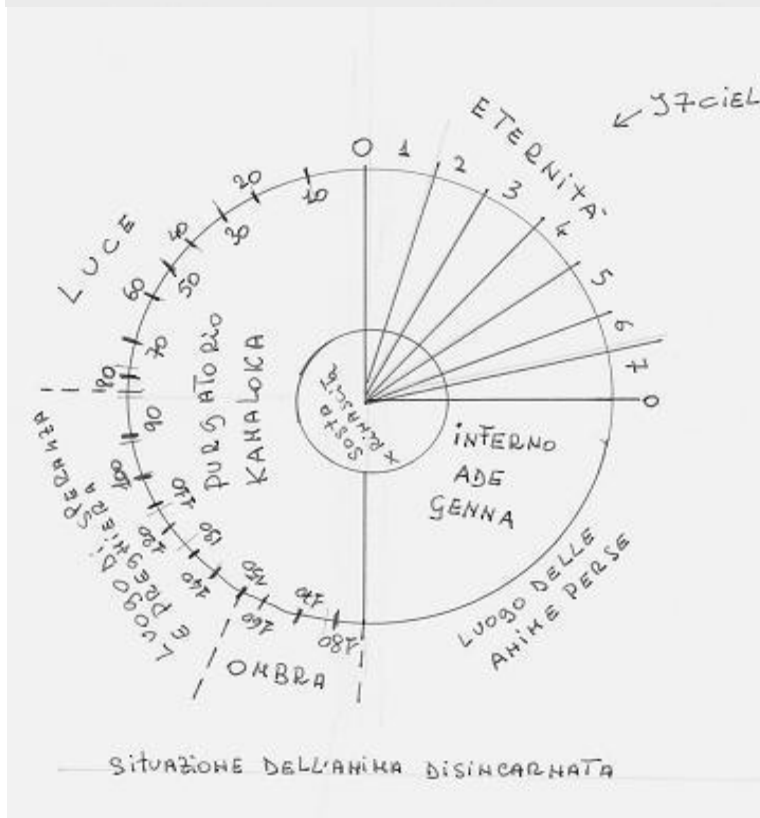 I 7 CIEL
ETERNITÀ
0
1
2
3
4
5
6
7
0
10
20
30
40
50
60
70
80
90
100
110
120
130
140
150
160
170
180
LUCE
PURGATORIO
KAMALOKA
SOSTA
X RINASCITA
INFERNO
ADE
GENNA
LUOGO DI SPERANZA
E PREGHIERA
LUOGO DELLE
ANIME PERSE
OMBRA
SITUAZIONE DELL'ANIMA DISINCARNATA